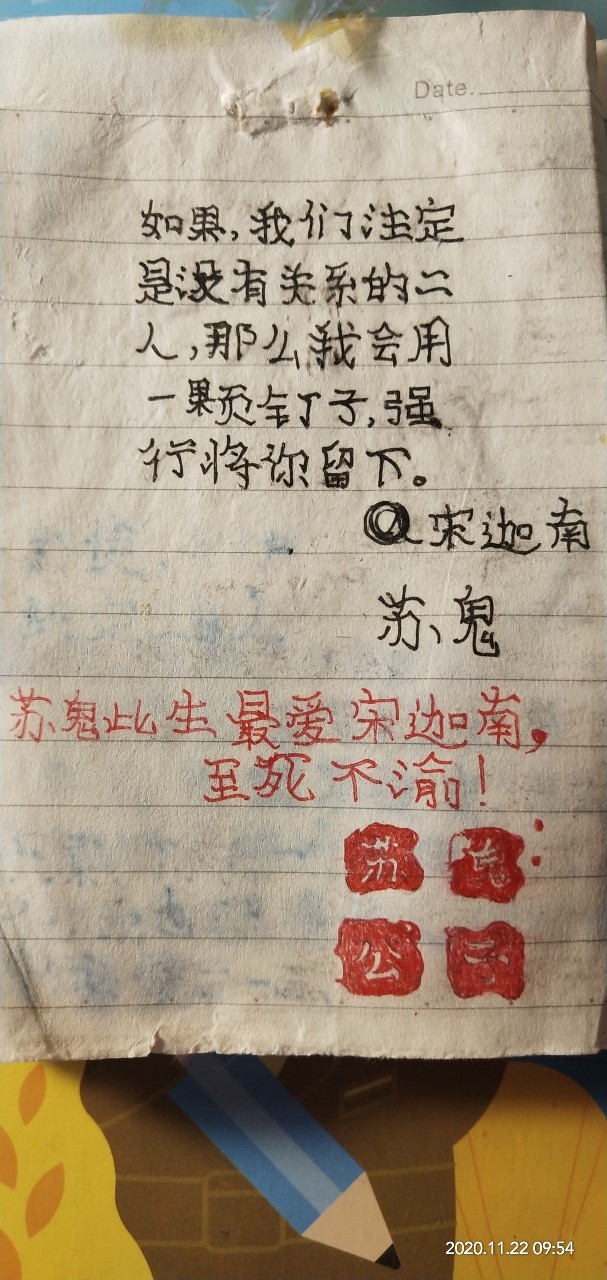 Date.
如果,我们注定
是没有关系的二
人,那么我会用
一颗钉子,强
行将你留下。
@宋迦南
苏鬼
苏鬼此生最爱宋迦南,
至死不渝!
苏鬼
公子
2020.11.22 09:54